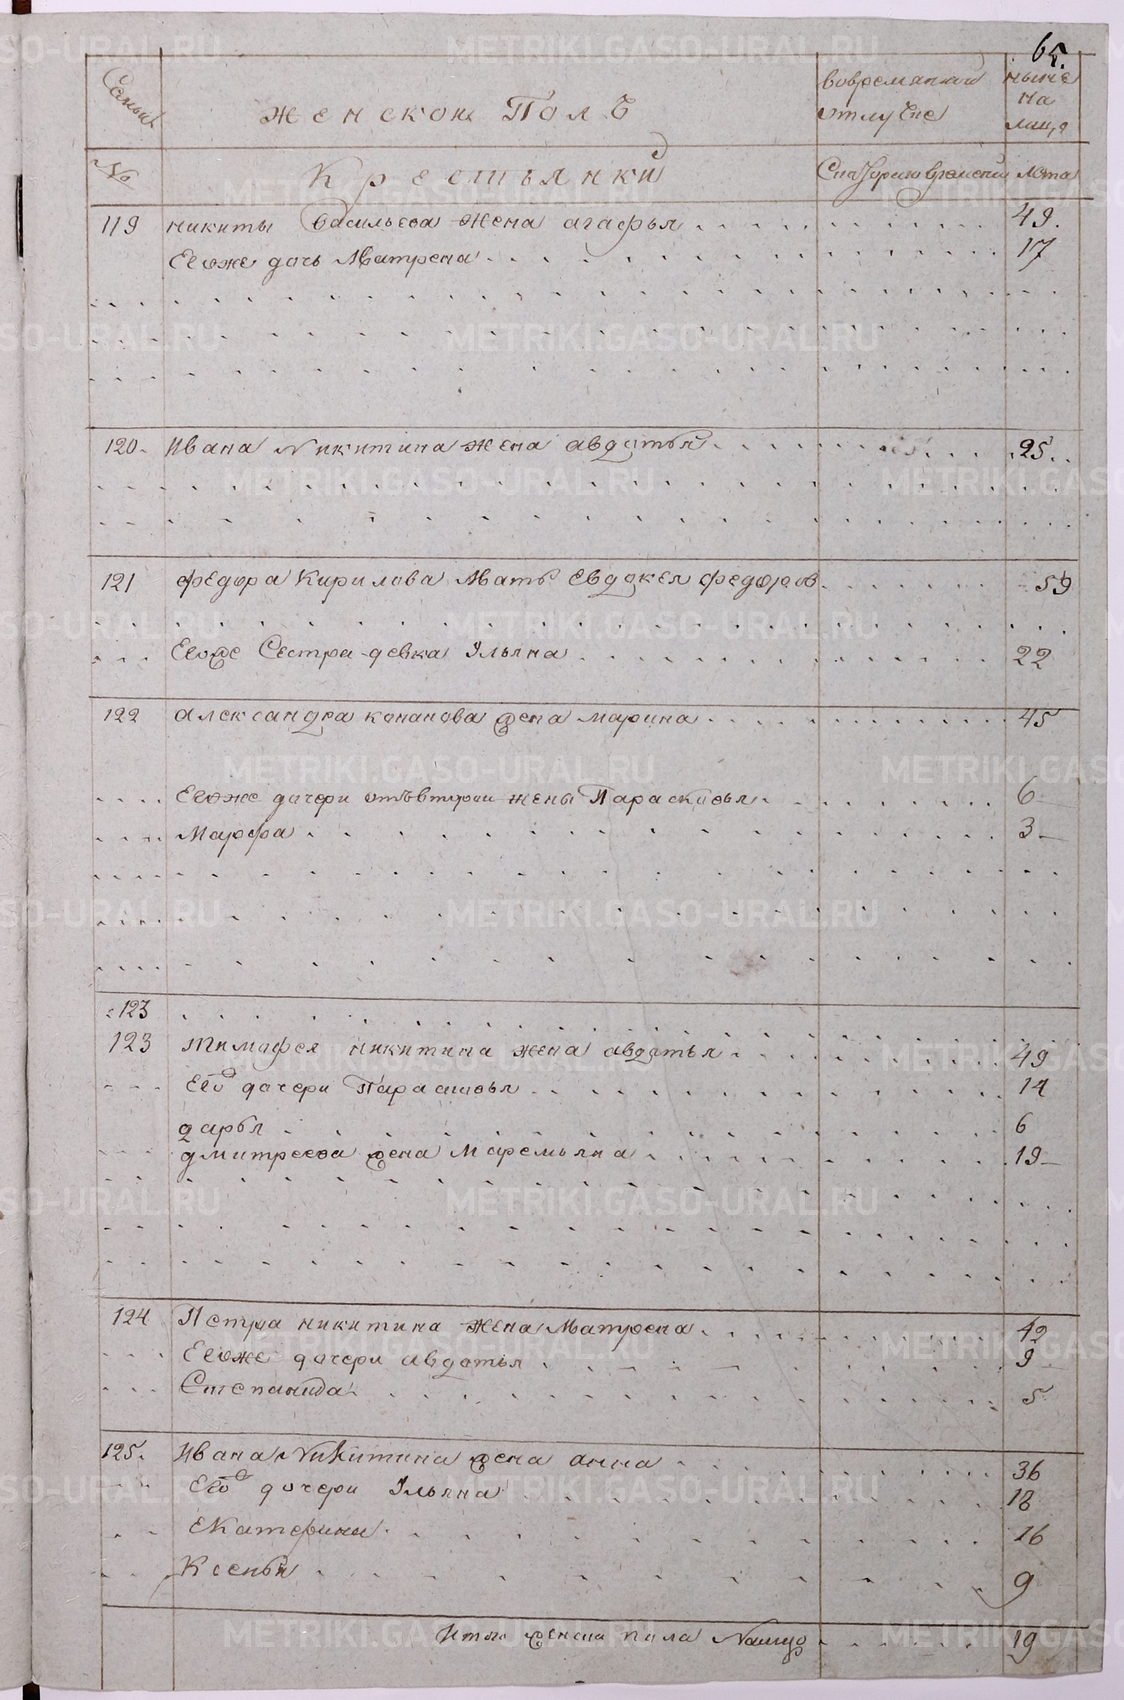 65.
Семьи
женской Полъ
вовременной отлучке
ныне на лицо
№
Крестьянки
Скотораго времени
Лета
119 никиты васильева жена агафья 49.
Егоже дочь Матрена 17
120. Ивана Никитина жена авдотья 25
121 федора Кирилова Мать Евдокея федоров 59
Егоже Сестра девка Ульяна 22
122 александра конанова жена марина 45
Егоже дочери отъвторои жены Парасковья 6
Марфа 3
123
123 тимофея никитина жена авдотья 49
Его дочери Парасковья 14
дарья 6
дмитреева жена Маремьяна 19
124 Петра никитина жена Матрена 42
Егоже дочери авдотья 9
Степанида 5
125. Ивана Никитина жена анна 36
Его дочери Ульяна 18
Екатерина 16
Ксенья 9
Итого женска пола Налицо 19
METRIKI.GASO-URAL.RU